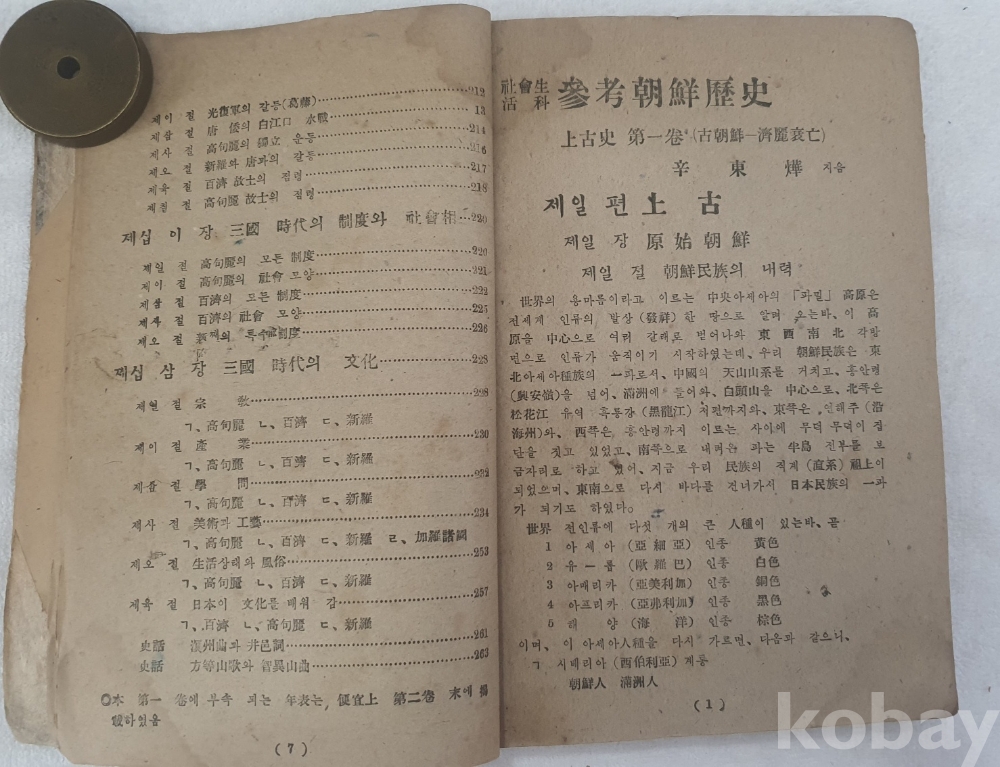 212
제이 절 光復軍의 갈등(葛藤) 13
제삼 절 唐 倭의 白江口 水戰 214
제사 절 高句麗의 獨立 운동 216
제오 절 新羅와 唐과의 갈등 217
제육 절 百濟 故土의 점령 218
제칠 절 高句麗 故土의 점령
제십 이 장 三國 時代의 制度와 社會相 220
제일 절 高句麗의 모든 制度 220
제이 절 高句麗의 社會 모양 221
제삼 절 百濟의 모든 制度 222
제사 절 百濟의 社會 모양 225
제오 절 新羅의 특수制度 226
제십 삼 장 三國 時代의 文化 228
제일 절 宗 敎 228
ㄱ、高句麗 ㄴ、百濟 ㄷ、新羅
제이 절 產 業 230
ㄱ、高句麗 ㄴ、百濟 ㄷ、新羅
제삼 절 學 問 232
ㄱ、高句麗 ㄴ、百濟 ㄷ、新羅
제사 절 美術과 工藝 234
ㄱ、高句麗 ㄴ、百濟 ㄷ、新羅 ㄹ、加羅諸國
제오 절 生活상태와 風俗 253
ㄱ、高句麗 ㄴ、百濟 ㄷ、新羅
제육 절 日本이 文化를 배워 감 257
ㄱ、百濟 ㄴ、高句麗 ㄷ、新羅
史話 溟州曲와 井邑詞 261
史話 方等山歌와 智異山曲 263
○本 第一 卷에 부속 되는 年表는, 便宜上 第二卷 末에 揭
載하였음
(7)
社會生
活 科 參考朝鮮歷史
上古史 第一卷 (古朝鮮—濟麗衰亡)
辛 東 燁 지음
제일 편 上 古
제일 장 原始朝鮮
제일 절 朝鮮民族의 내력
世界의 용마름이라고 이르는 中央아세아의 「파밀」高原은
전세계 인류의 발상(發祥)한 땅으로 알려 오는바、이 高
原을 中心으로 여러 갈래로 벋어나와 東西南北 각방
면으로 人류가 움직이기 시작하였는데、우리 朝鮮民族은 東
北아세아種族의 一파로서、中國의 天山山系를 거치고、흥안령
(興安嶺)을 넘어、滿洲에 들어와、白頭山을 中心으로、北쪽은
松花江 유역 흑룡강(黑龍江) 저편까지와、東쪽은 연해주(沿
海州)와、西쪽은 흥안령까지 이르는 사이에 무덕 무덕이 집
단을 짓고 있었고、南쪽으로 내려온 파는 半島 전부를 보
금자리로 하고 있어、지금 우리 民族의 직계(直系) 祖上이
되었으며、東南으로 다시 바다를 건너가서 日本民族의 一파
가 되기도 하였다。
世界 전인류에 다섯 개의 큰 人種이 있는바、곧
1 아세아 (亞細亞) 인종 黃色
2 유ㅡ롭 (歐羅巴) 인종 白色
3 아메리카 (亞美利加) 인종 銅色
4 아프리카 (亞弗利加) 인종 黑色
5 해 양 (海 洋) 인종 棕色
이며、이 아세아人種을 다시 가르면、다음과 같으니、
ㄱ 시베리아 (西伯利亞) 계통
朝鮮人 滿洲人
(1)
kobay